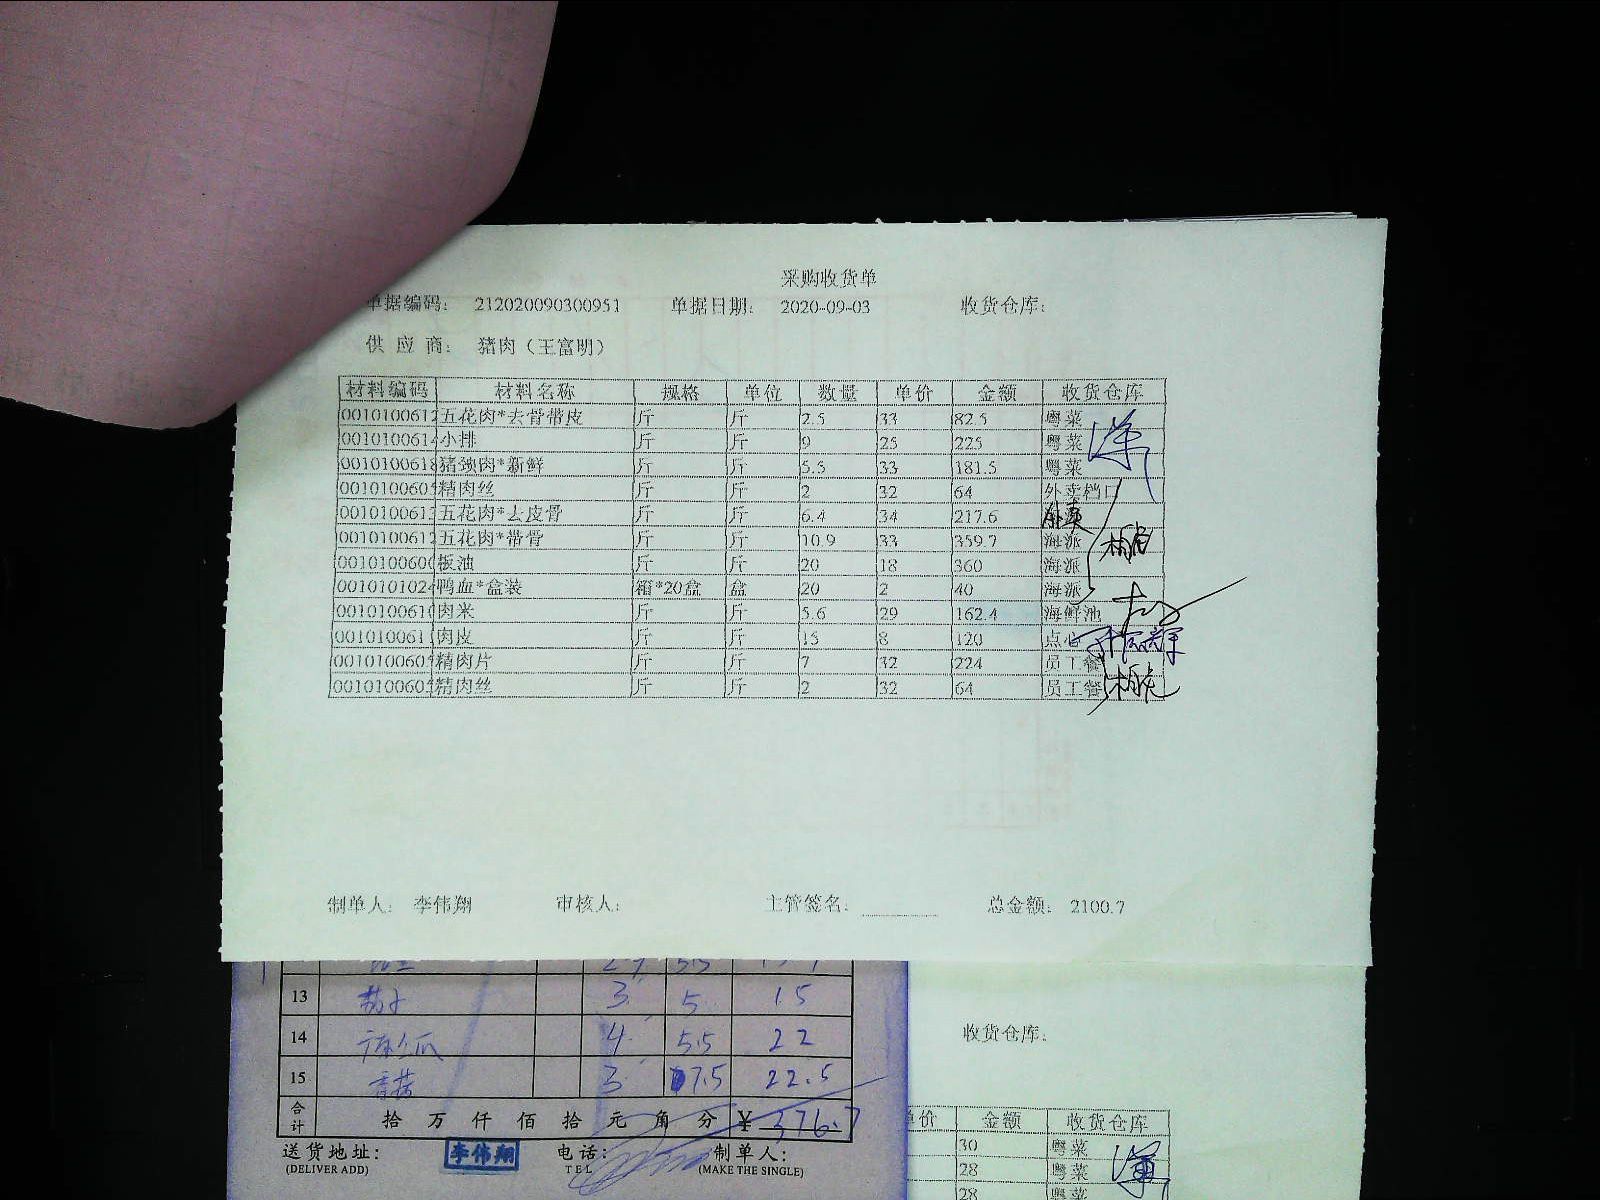 采购收货单
单据编码: 212020090300951 单据日期: 2020-09-03 收货仓库:
供 应 商: 猪肉（王富明）
材料编码 材料名称 规格 单位 数量 单价 金额 收货仓库
0010100612 五花肉*去骨带皮 斤 斤 2.5 33 82.5 粤菜
0010100614 小排 斤 斤 9 25 225 粤菜
0010100618 猪颈肉*新鲜 斤 斤 5.5 33 181.5 粤菜
001010060 精肉丝 斤 斤 2 32 64 外卖档口
001010061 五花肉*去皮骨 斤 斤 6.4 34 217.6 外卖
001010061 五花肉*带骨 斤 斤 10.9 33 359.7 海派
001010060 板油 斤 斤 20 18 360 海派
001010102 鸭血*盒装 箱*20盒 盒 20 2 40 海派
001010061 肉米 斤 斤 5.6 29 162.4 海鲜池
001010061 肉皮 斤 斤 15 8 120 点心
001010060 精肉片 斤 斤 7 32 224 员工餐
001010060 精肉丝 斤 斤 2 32 64 员工餐
制单人: 李伟翔 审核人: 主管签名: 总金额: 2100.7
13 茄子 3 5 15
14 4 5.5 22
15 3 7.5 22.5
合计 拾 万 仟 佰 拾 元 角 分 ¥ 376.7
送货地址: 李伟翔 电话: 制单人:
(DELIVER ADD) TEL (MAKE THE SINGLE)
收货仓库:
单价 金额 收货仓库
30 粤菜
28 粤菜
28 粤菜